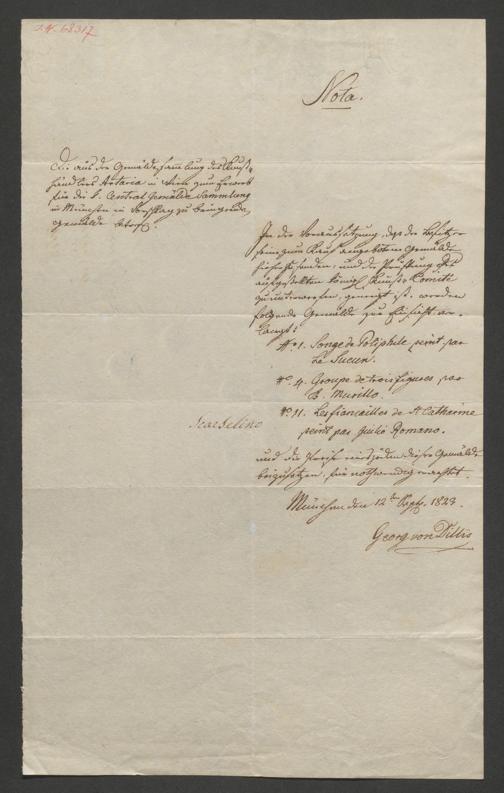 I.N. 68317
Nota.
Die aus der Gemäldesammlung des Kunst-
händlers Artaria in Wien zum Erwerb
für die k. Central Gemälde Sammlung
in München in Vorschlag zu bringende
Gemälde betref.
In der Voraussetzung, daß der Besitzer
seine zum Kauf angebotene Gemälde
hieherzusenden, und der Prüfung des
aufgestellten königl. Kunst-Comité
zu unterwerfen, geneigt ist, werden
folgende Gemälde zur Einsicht ver-
langt:
No. 1. Songe de Poliphile peint par
Le Sueur.
No. 4. Groupe de trois figures par
B. Murillo.
No. 11. Les fiancailles de St Catharine
peint par Giulio Romano.
und die Preise eines jeden dieser Gemälde
beizusetzen, für nothwendig erachtet.
München den 12ten Sept. 1823.
Georg von Dillis